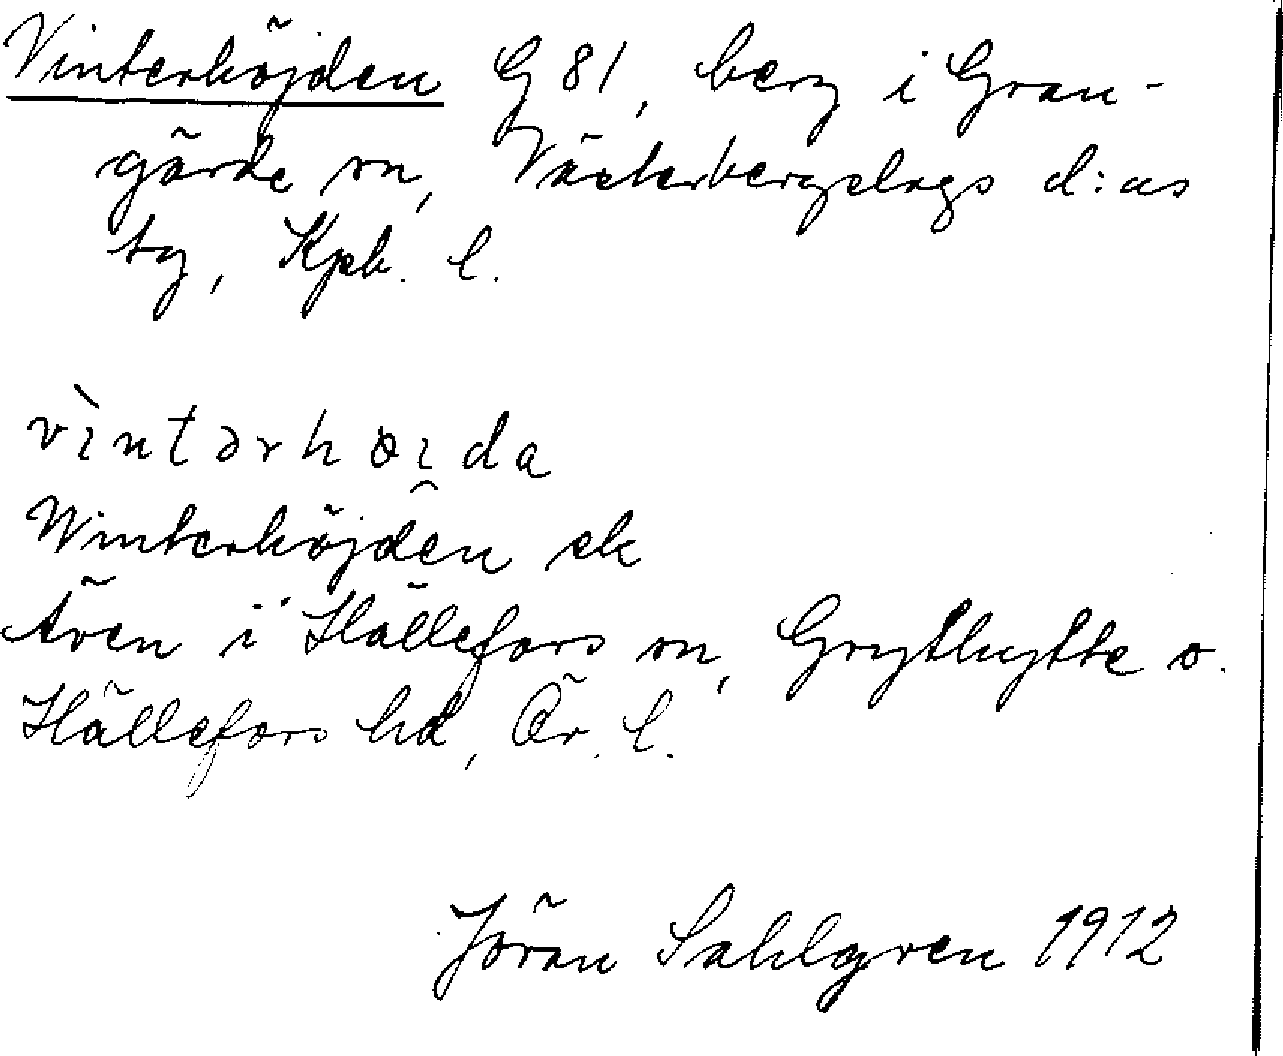 Vinterhöjden G 81, berg i Gran-
gärde sn, Västerbergslags d:as
tg, Kpb. l.
vìntərhøi̯da
Winterhöjden ek
Även i Hällefors sn, Grythytte o.
Hällefors hd, Ör. l.
Jöran Sahlgren 1912